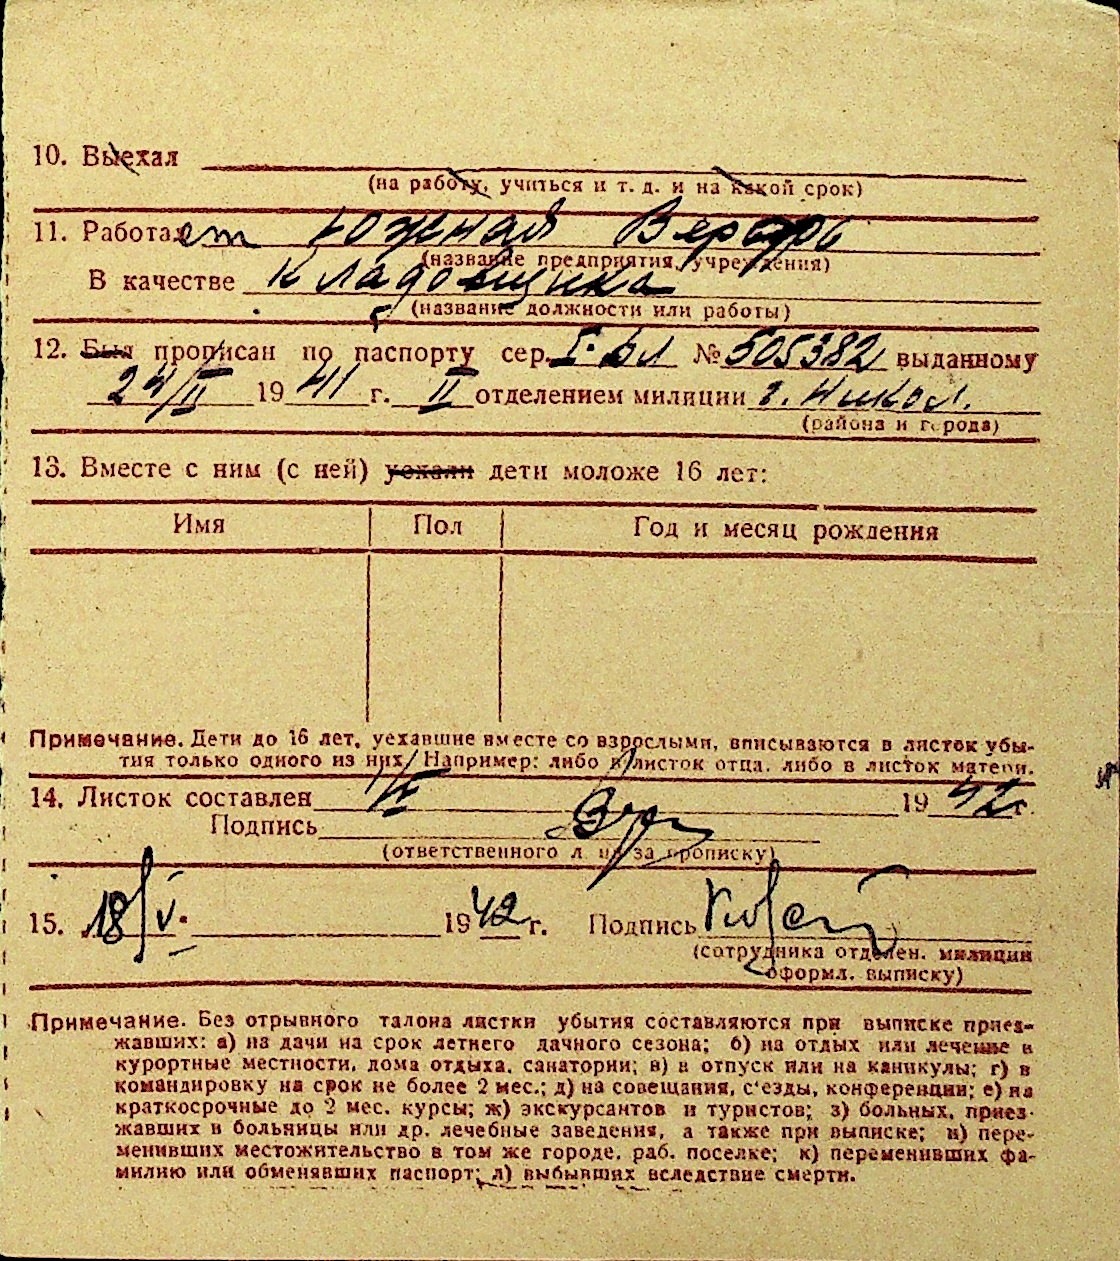 10. Выехал
(на работу, учиться и т. д. и на какой срок)
11. Работает Южная Верфь
(название предприятия, учреждения)
В качестве Кладовщика
(название должности или работы)
12. Был прописан по паспорту сер. I-бл № 505382 выданному
24/II 1941 г. II отделением милиции г. Никол.
(района и города)
13. Вместе с ним (с ней) уехали дети моложе 16 лет:
Имя Пол Год и месяц рождения
Примечание. Дети до 16 лет, уехавшие вместе со взрослыми, вписываются в листок убы-
тия только одного из них. Например: либо в листок отца, либо в листок матери.
14. Листок составлен 1942 г.
Подпись
(ответственного лица за прописку)
15. 18/V. 1942 г. Подпись
(сотрудника отделен. милиции
оформл. выписку)
Примечание. Без отрывного талона листки убытия составляются при выписке приез-
жавших: а) на дачи на срок летнего дачного сезона; б) на отдых или лечение в
курортные местности, дома отдыха, санатории; в) в отпуск или на каникулы; г) в
командировку на срок не более 2 мес.; д) на совещания, с'езды, конференции; е) на
краткосрочные до 2 мес. курсы; ж) экскурсантов и туристов; з) больных, приез-
жавших в больницы или др. лечебные заведения, а также при выписке; и) пере-
менивших местожительство в том же городе, раб. поселке; к) переменивших фа-
милию или обменявших паспорт; л) выбывших вследствие смерти.